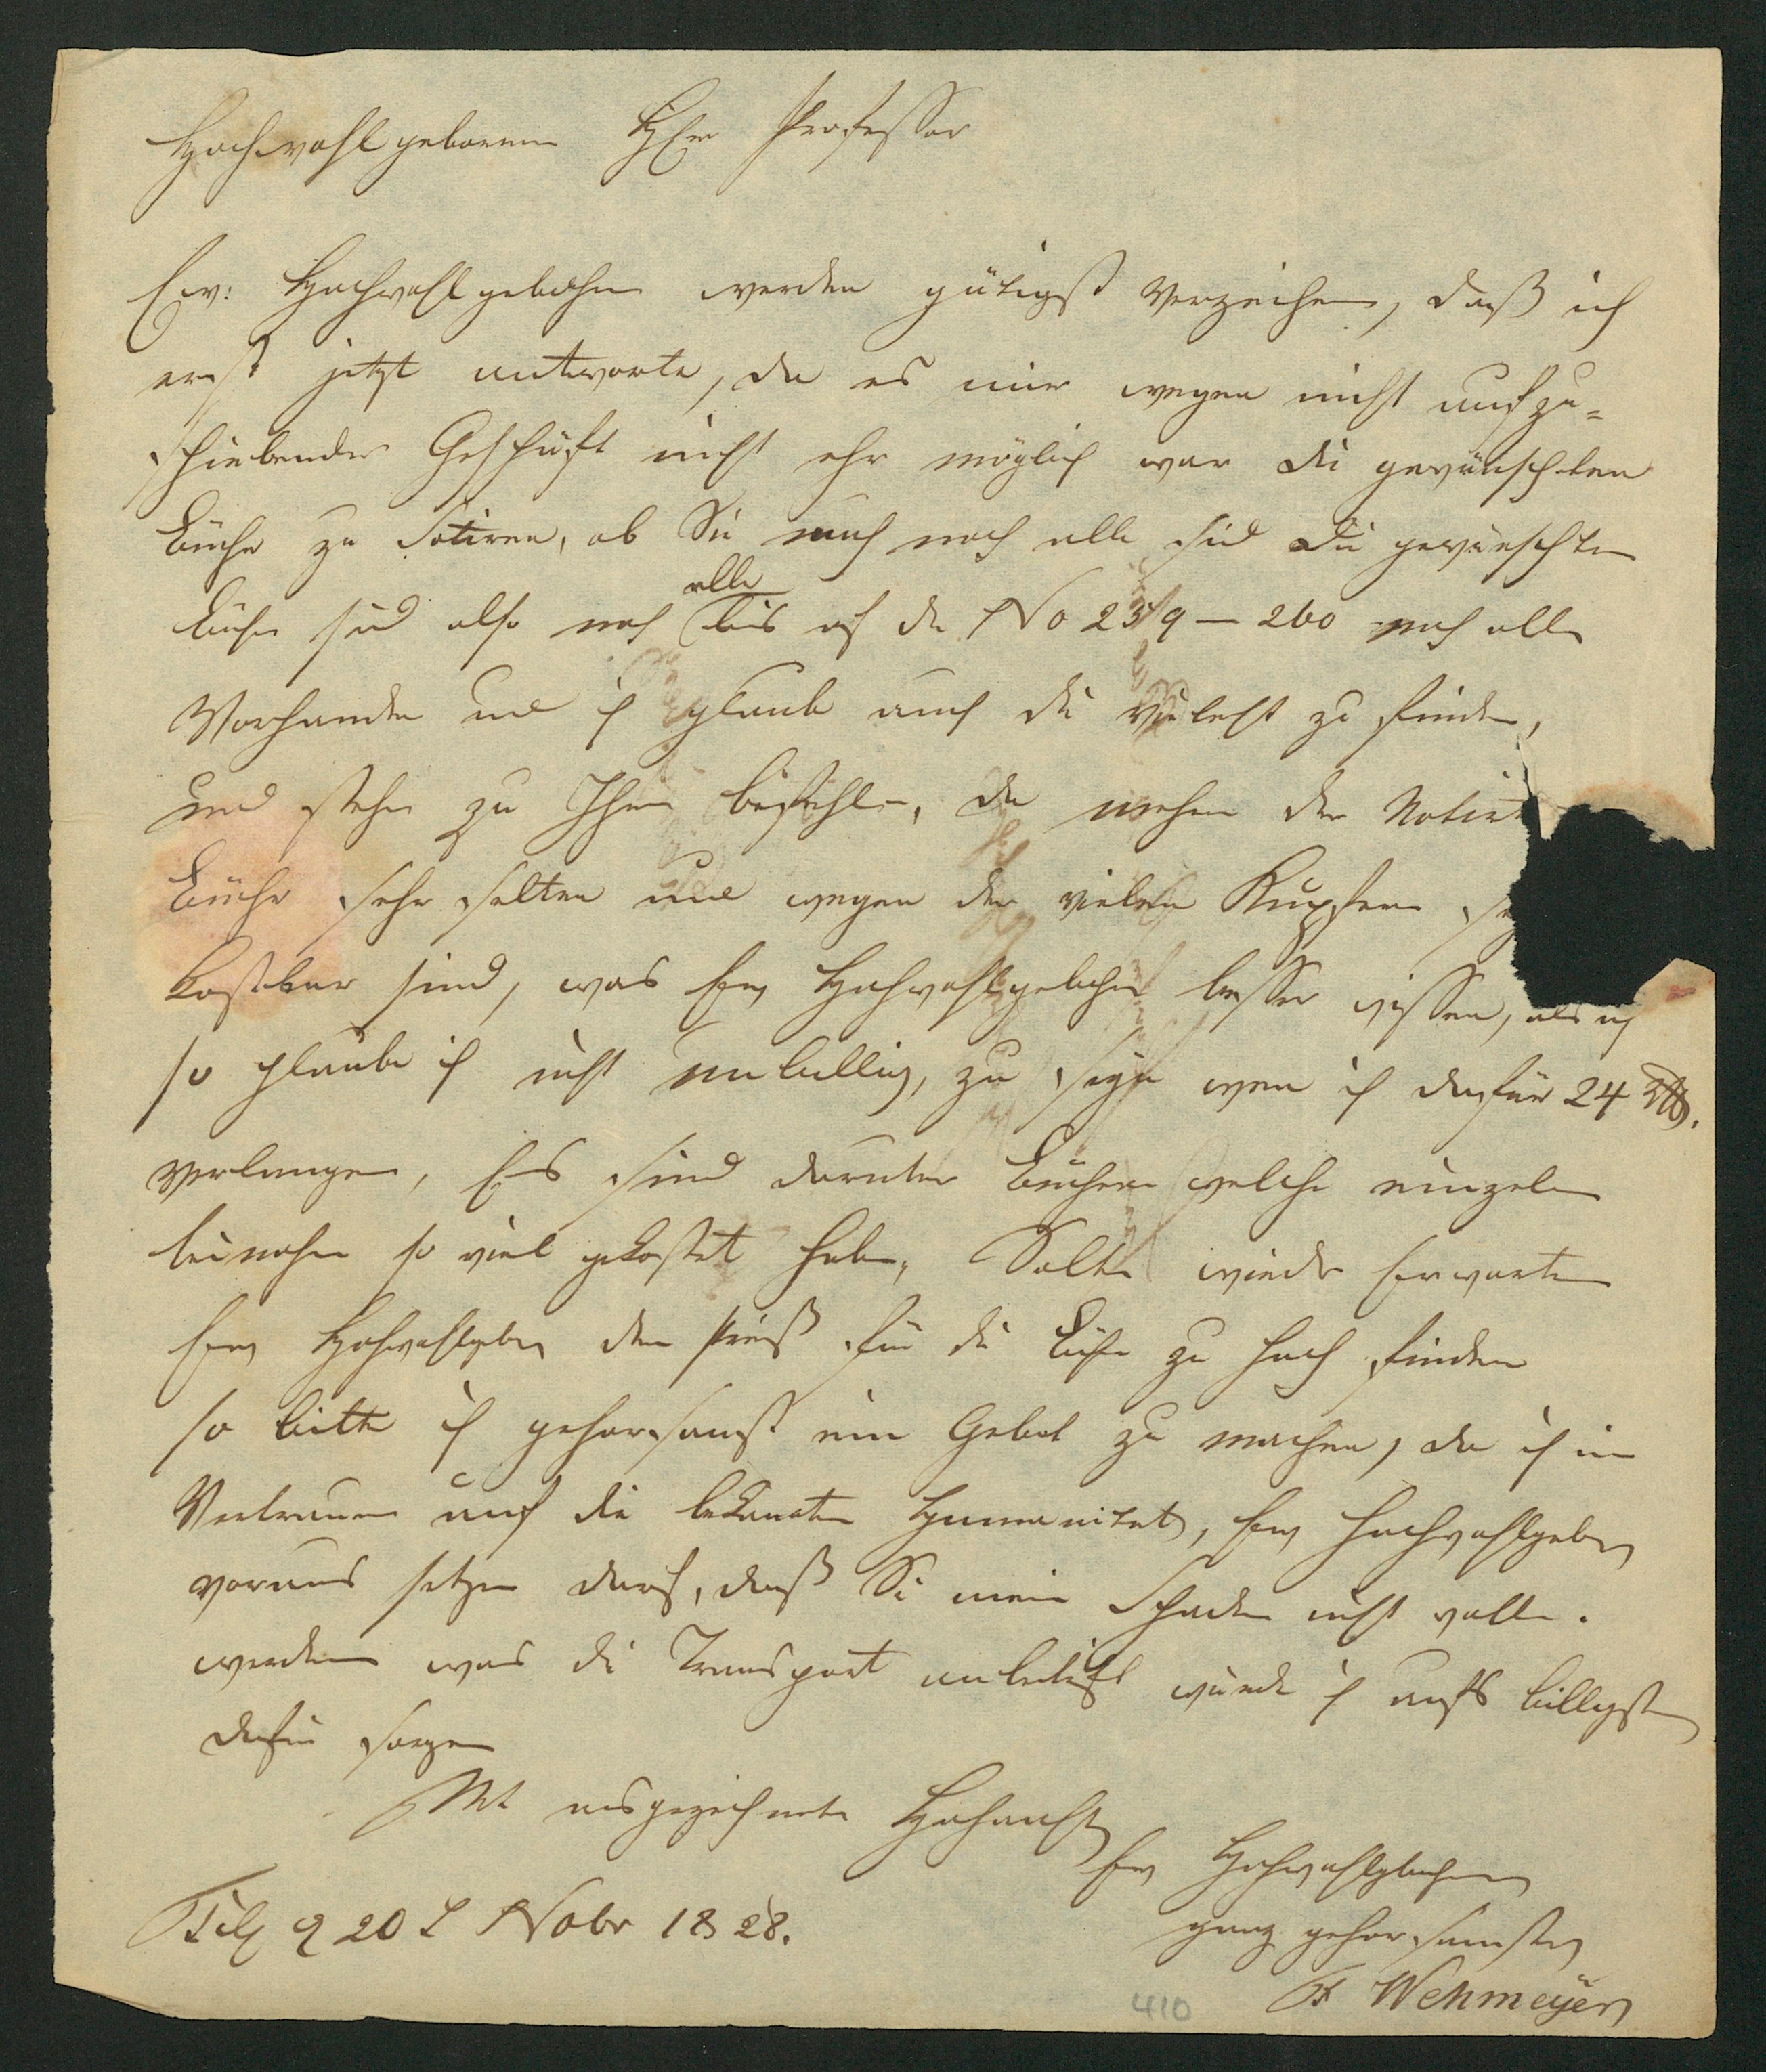 Hochwohlgeborner HErr Professor
Ew: Hochwohlgebohrn werden gütigst verzeihen, daß ich
erst jetzt antworte, da es mir wegen nicht aufzu-
schiebender Geschäft nicht ehr möglich war die gewünschten
Bücher zu Notiren, ob Sie auch noch alle sind die gewünschten
Bücher sind also noch alle bis auf die No 259 — 260 noch alle
Vorhanden und ich glaube auch die vieleicht zu finden,
und stehen zu Ihren befehlen, da mehre der Notirt
Bücher sehr selten und wegen der vielen Kupfern
kostbar sind, was Ew Hochwohlgebohrn besser wissen, als ich
so glaube ich nicht unbillig, zu seyn wen ich dafür 24
verlangen, Es sind darunter Bücher welche einzeln
beinahe so viel gekostet haben, Solten wieder Erwarten
Ew Hochwohlgebn den Preiß für die Bücher zu hoch finden
so bitte ich gehorsamst ein Gebot zu machen, da ich im
Vertrauen auf die bekante Humanitet, Ew Hochwohlgebn
voraus setzen darf, daß Sie mein Schaden nicht wollen.
werden was die Transport anbetrift würde ich aufs billigste
dafür sorgen
Mit ausgezeichneter Hochacht
Ew Hochwohlgebohrn
ganz gehorsamster
20 Nobr 1828.
Wehmeyer
410